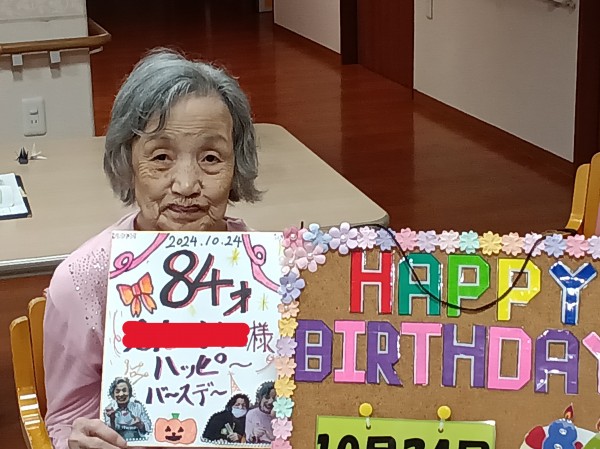 2024.10.24
84才
様
ハッピ〜
バ〜スデ〜
HAPPY
BIRTHDAY
10月24日